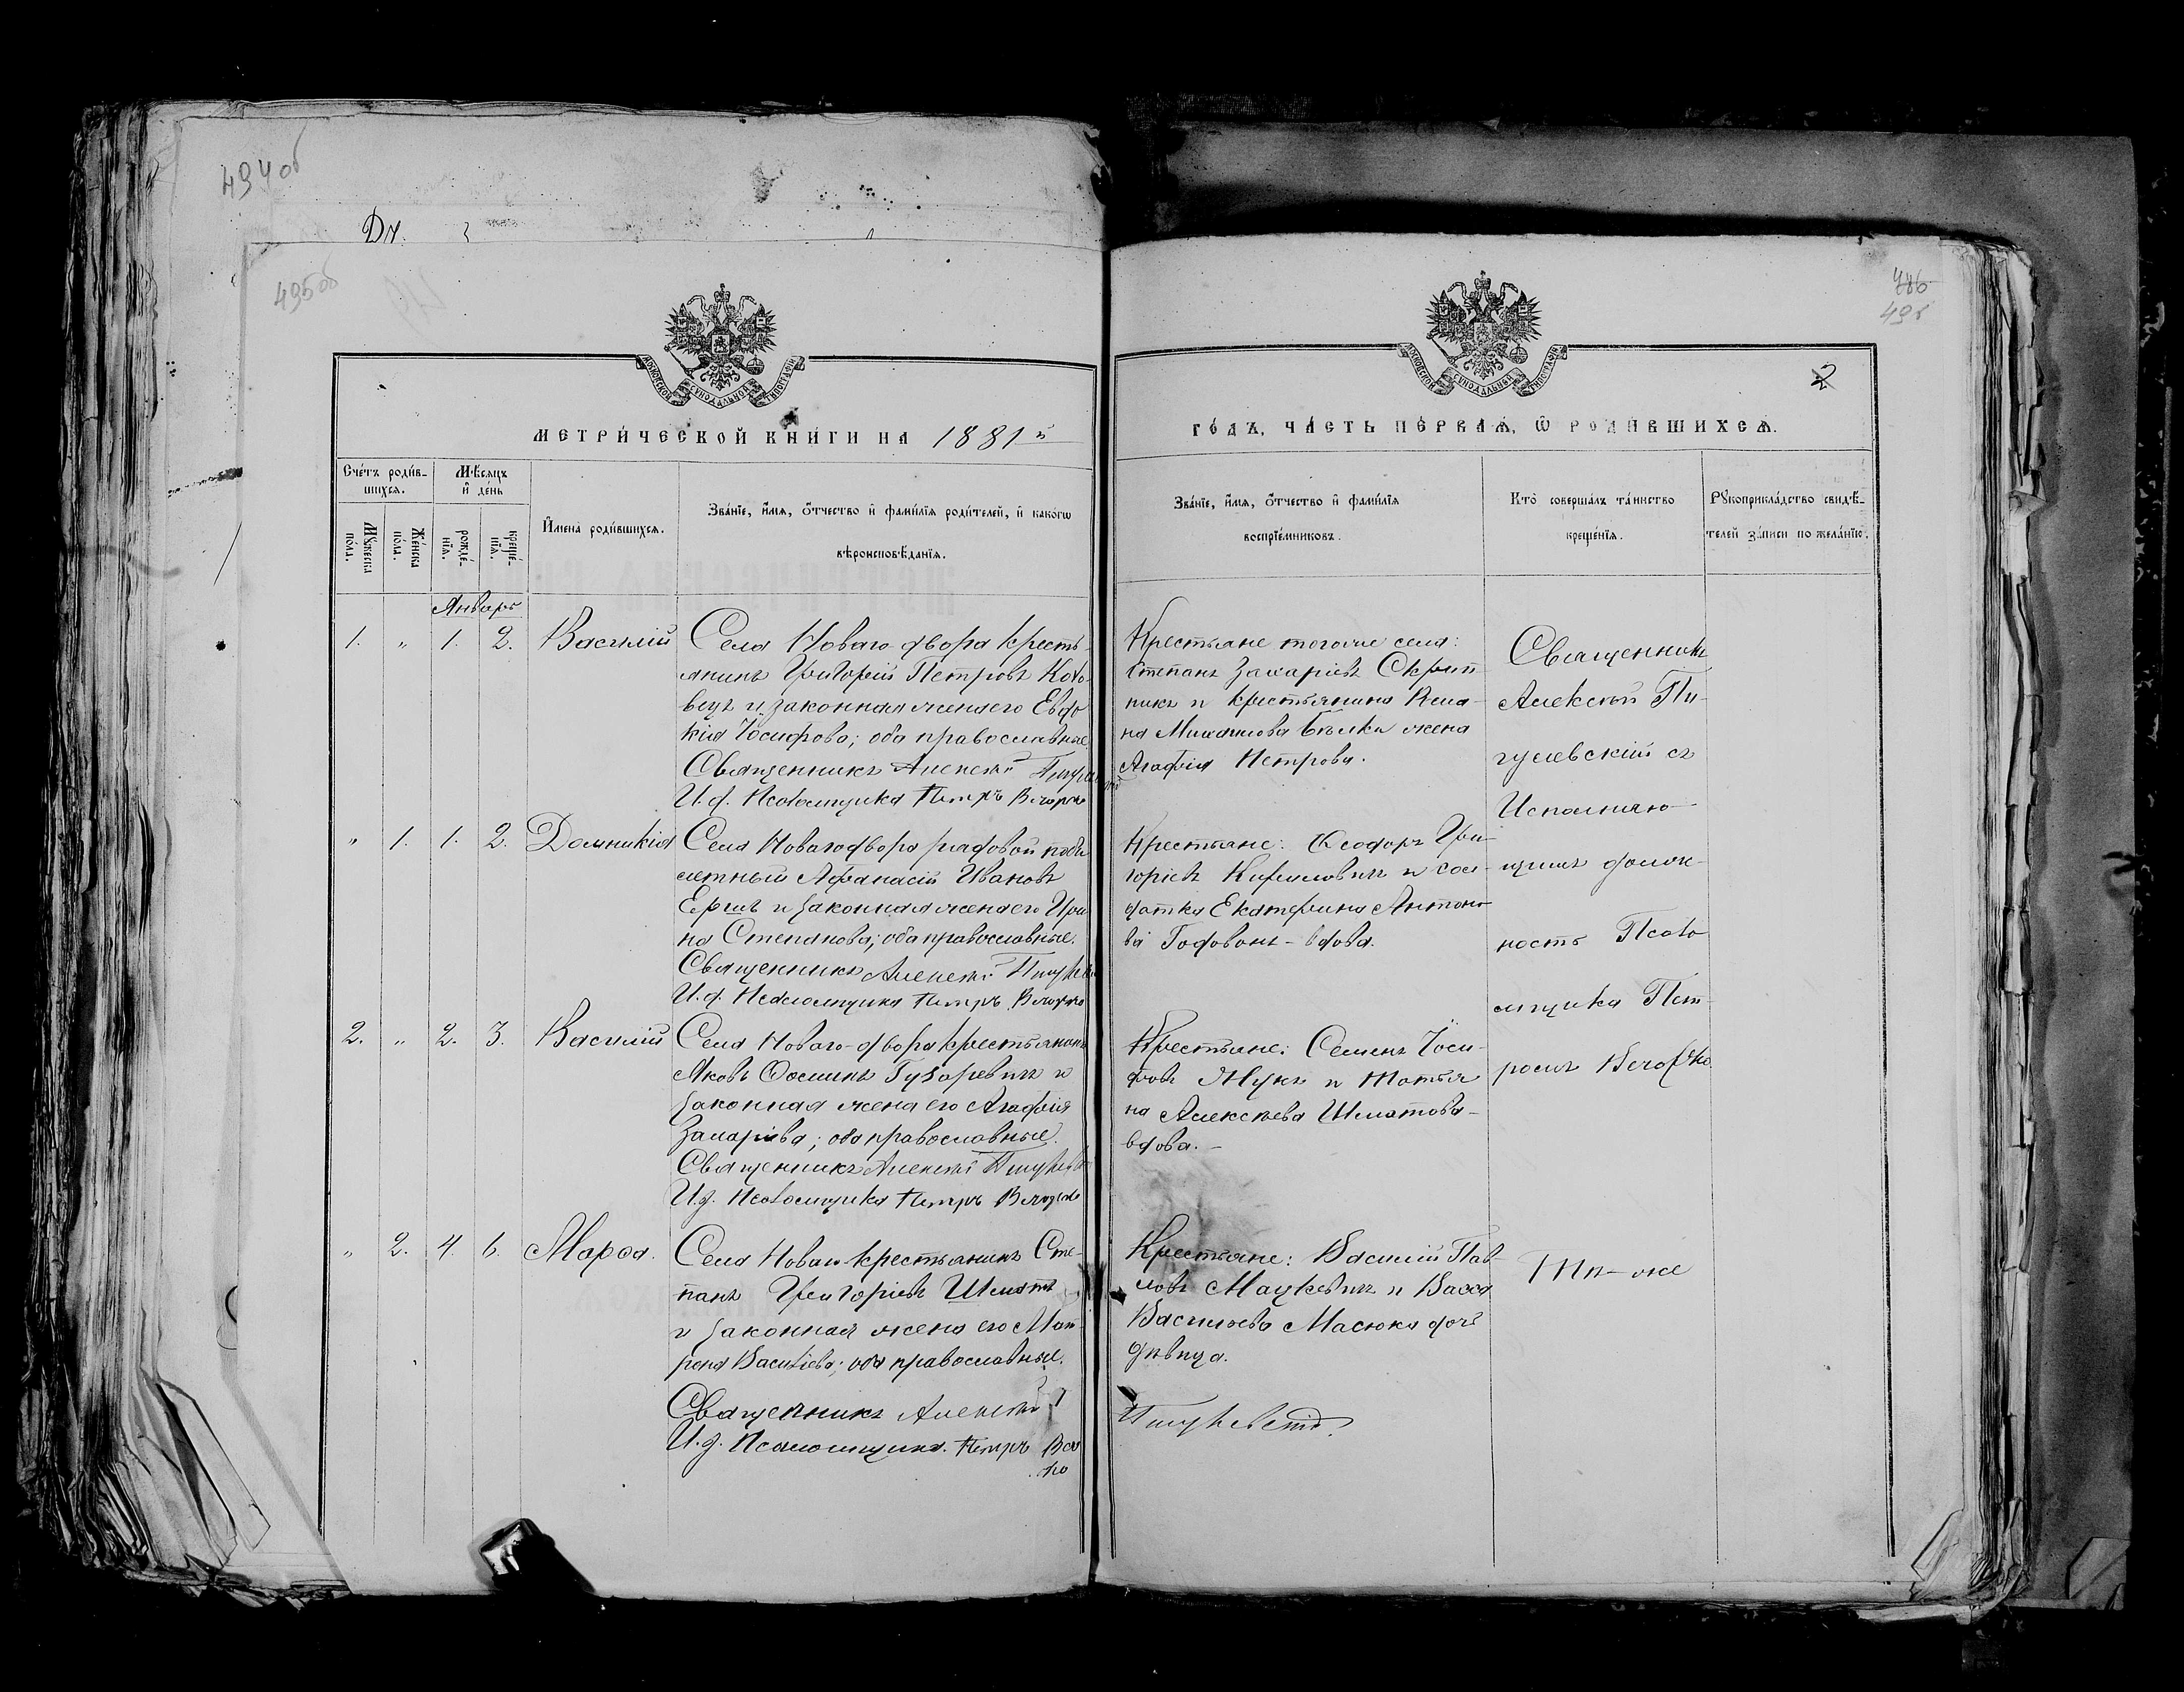 494 об
Дн.
495 об
486
495
2
МОСКОВСКОЙ СѴНОДАЛЬНОЙ ТИПОГРАФІИ
МОСКОВСКОЙ СѴНОДАЛЬНОЙ ТИПОГРАФІИ
МЕТРИ́ЧЕСКОЙ КНИ́ГИ НА 1881й
ГО́ДЪ, ЧА́СТЬ ПЕ́РВАѦ, Ѽ РОДИ́ВШИХСѦ.
Сче́тъ роди́в-
шихсѧ.
Мѣ́сѧцъ
и҆ день
Мꙋ́жеска
по́ла.
Же́нска
по́ла.
рожде́-
нїѧ.
креще́-
нїѧ.
И҆мена̀ роди́вшихсѧ.
Зва́нїе, и҆́мѧ, ѻ҆́тчество и҆ фами́лїѧ роди́телей, и҆ како́гѡ
вѣроисповѣ́данїѧ.
Зва́нїе, и҆́мѧ, ѻ҆́тчество и҆ фами́лїѧ
воспрїе́мниковъ.
Кто̀ соверша́лъ та́инство
креще́нїѧ.
Рꙋкоприкла́дство свидѣ́-
телей за́писи по жела́нїю.
Январь
1. „ 1. 2. Василій
Села Новаго-двора кресть-
янинъ Григорій Петровъ Кохо-
вецъ и законная жена его Евдо
кія Іосифова; оба православные.
Священникъ Алексѣй
И. д. Псаломщика Петръ
Крестьяне тогоже села:
Степанъ Захаріевъ Скрип-
никъ и крестьянина
на Михайлова Бѣлки жена
Агафія Петрова.
Священникъ
Алексѣй Пи-
гулевскій съ
Исполняю-
щимъ долж-
ность Псало
мщика Пет-
ромъ
„ 1. 1. 2. Домникія
Села Новагодвора рядовой
Афанасій Ивановъ
Ершъ и законная жена его Ири
на Степанова; оба православные.
Священникъ Алексѣй
И. д. Псаломщика Петръ
Крестьяне: Ѳеодоръ Гри-
горіевъ Кириловичъ и сол-
датка Екатерина Антоно-
ва Годовонъ - вдова.
2. „ 2. 3. Василій
Села Новаго-двора крестьянинъ
Яковъ Ѳоминъ Гузаревичъ и
законная жена его Агафія
Захаріева; оба православные.
Священникъ Алексѣй
И. д. Псаломщика Петръ
Крестьяне: Семенъ Іоси-
фовъ Жукъ и Татья
на Алексѣева Шматова-
вдова. -
„ 2. 4. 6. Марѳа.
Села Новаго крестьянинъ Сте-
панъ Григоріевъ Шматъ
и законная жена его Мат-
рона Василіева; оба православные.
Священникъ Алексѣй
И. д. Псаломщика. Петръ
Крестьяне: Василій Пав-
ловъ Мацкевичъ и Васса
Васильева Масюка дочь
дѣвица.
Пигулевскій
Тѣ-же